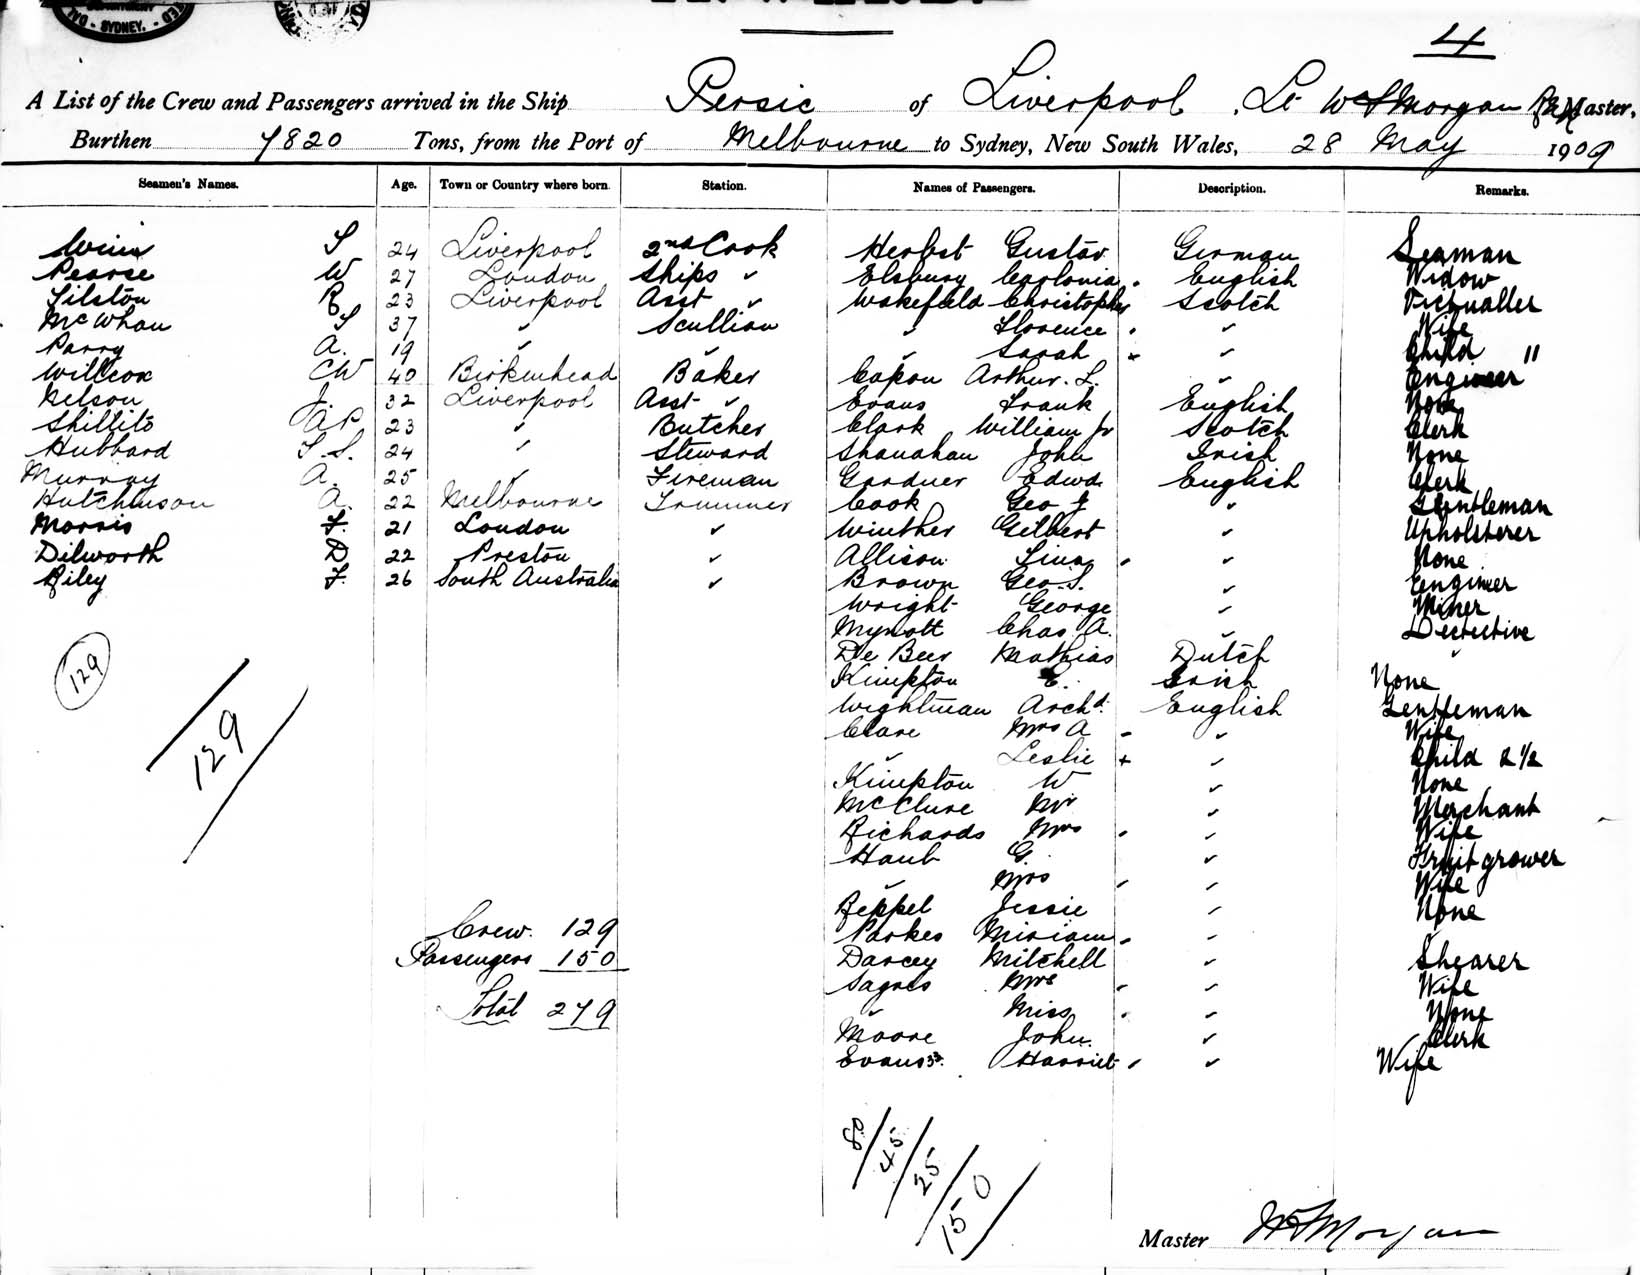 SYDNEY.
4
A List of the Crew and Passengers arrived in the Ship Persic of Liverpool, Lt W H Morgan RNR Master,
Burthen 7820 Tons, from the Port of Melbourne to Sydney, New South Wales, 28 May 1909
Seamen's Names. Age. Town or Country where born. Station. Names of Passengers. Description. Remarks.
S 24 Liverpool 2nd Cook Herbst Gustav German Seaman
Pearse W 27 London Ships " Elsbury English Widow
Tilston R 23 Liverpool Asst " Wakefield Christopher Scotch Victualler
McWhan S 37 " Scullion " Florence " Wife
Parry A. 19 " " " Sarah " Child "
Willcox CW 40 Birkenhead Baker Capon Arthur. L. " Engineer
Nelson J. 32 Liverpool Asst " Evans Frank English None
Shillito AP 23 " Butcher Clark William Jr Scotch Clerk
Hubbard T S. 24 " Steward Shanahan John Irish None
Murray A. 25 " Fireman Gardner Edwd English Clerk
Hutchinson A. 22 Melbourne Trimmer Cook Geo J " Gentleman
Morris F. 21 London " Winther Gilbert " Upholsterer
Dilworth D 22 Preston " Allison " None
Riley F. 26 South Australia " Brown Geo. S. " Engineer
Wright George " Miner
Mynott Chas. A. " Detective
De Beer Mathias Dutch "
Kimpton E. Irish None
Wightman Archd. English Gentleman
Clare Mrs A " Wife
" Leslie " Child 2 1/2
Kimpton W " None
McClure Mr " Merchant
Richards Mrs " Wife
Haub G. " Fruitgrower
" Mrs " Wife
Reppel Jessie " None
Parkes Miriam " "
Darcey Mitchell " Shearer
Mrs " Wife
" Miss " None
Moore John " Clerk
Evans Harriet " Wife
129
129
Crew. 129
Passengers 150
Total 279
80/45/25/150
Master W H Morgan